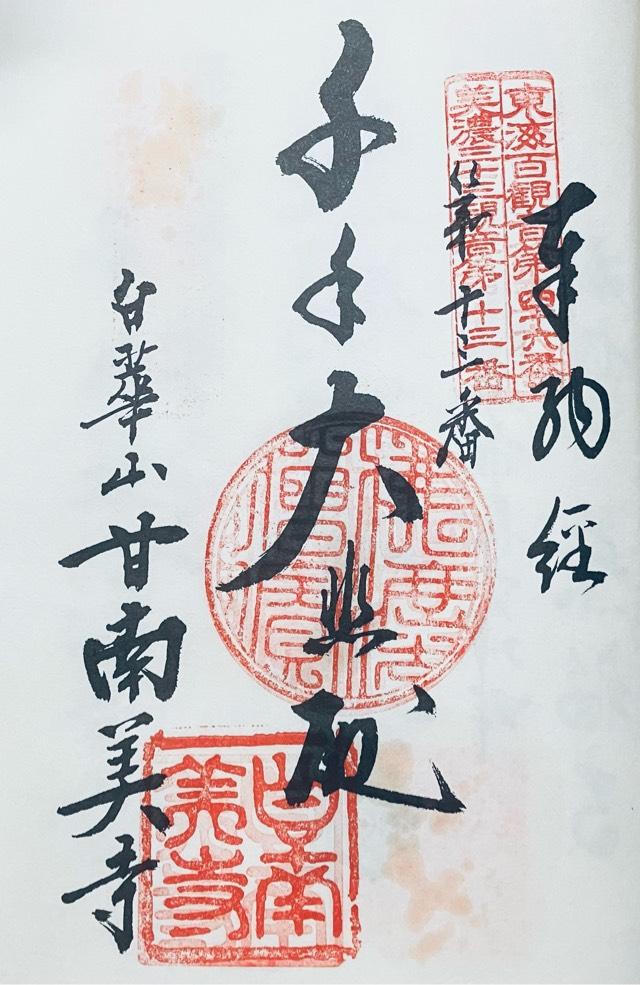 奉納経
東海百観音第四十六番
美濃三十三観音第十三番
十三番
千手大悲殿
白華山 甘南美寺
甘南
美寺